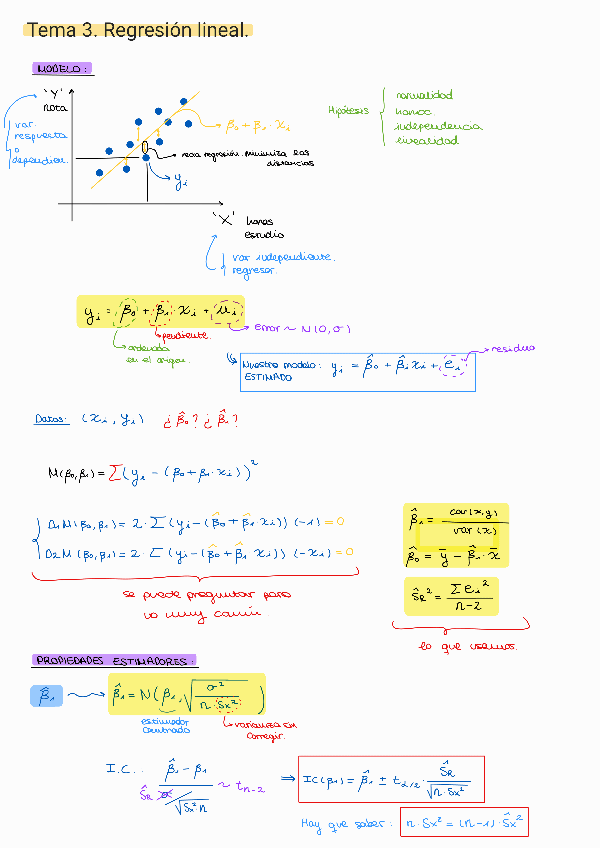 Tema 3. Regresión lineal.
MODELO:
'Y'
nota
var.
respuesta
o
dependien.
β₀ + β₁ · xᵢ
recta regresión. Minimiza las
distancias
yᵢ
'X' horas
estudio
var independiente.
regresor.
Hipótesis
normalidad
homoc
independencia
linealidad
yᵢ = β₀ + β₁ · xᵢ + uᵢ
pendiente.
ordenada
en el origen.
error ~ N(0,σ)
Nuestro modelo: yᵢ = β̂₀ + β̂₁ xᵢ + eᵢ
ESTIMADO
residuo
Datos: (xᵢ, yᵢ) ¿β̂₀? ¿β̂₁?
M(β₀,β₁) = Σ(yᵢ − (β₀ + β₁·xᵢ))²
D₁M(β₀,β₁) = 2·Σ(yᵢ−(β̂₀+β̂₁·xᵢ))(−1) = 0
D₂M(β₀,β₁) = 2·Σ(yᵢ−(β̂₀+β̂₁ xᵢ))(−xᵢ) = 0
se puede preguntar pero
no muy común
β̂₁ = cov(x,y) / var(x)
β̂₀ = y̅ − β̂₁·x̅
ŝ_R² = Σeᵢ² / n−2
lo que usamos.
PROPIEDADES ESTIMADORES:
β̂₁
β̂₁ = N(β₁, √(σ² / n·Sx²))
estimador
centrado
varianza sin
corregir.
I.C.. β̂₁ − β₁ / ŝ_R σ / √Sx²·n ~ t_{n−2}
⇒ IC(β₁) = β̂₁ ± t_{α/2} · ŝ_R / √n·Sx²
Hay que saber: n·Sx² = (n−1)·Ŝx²